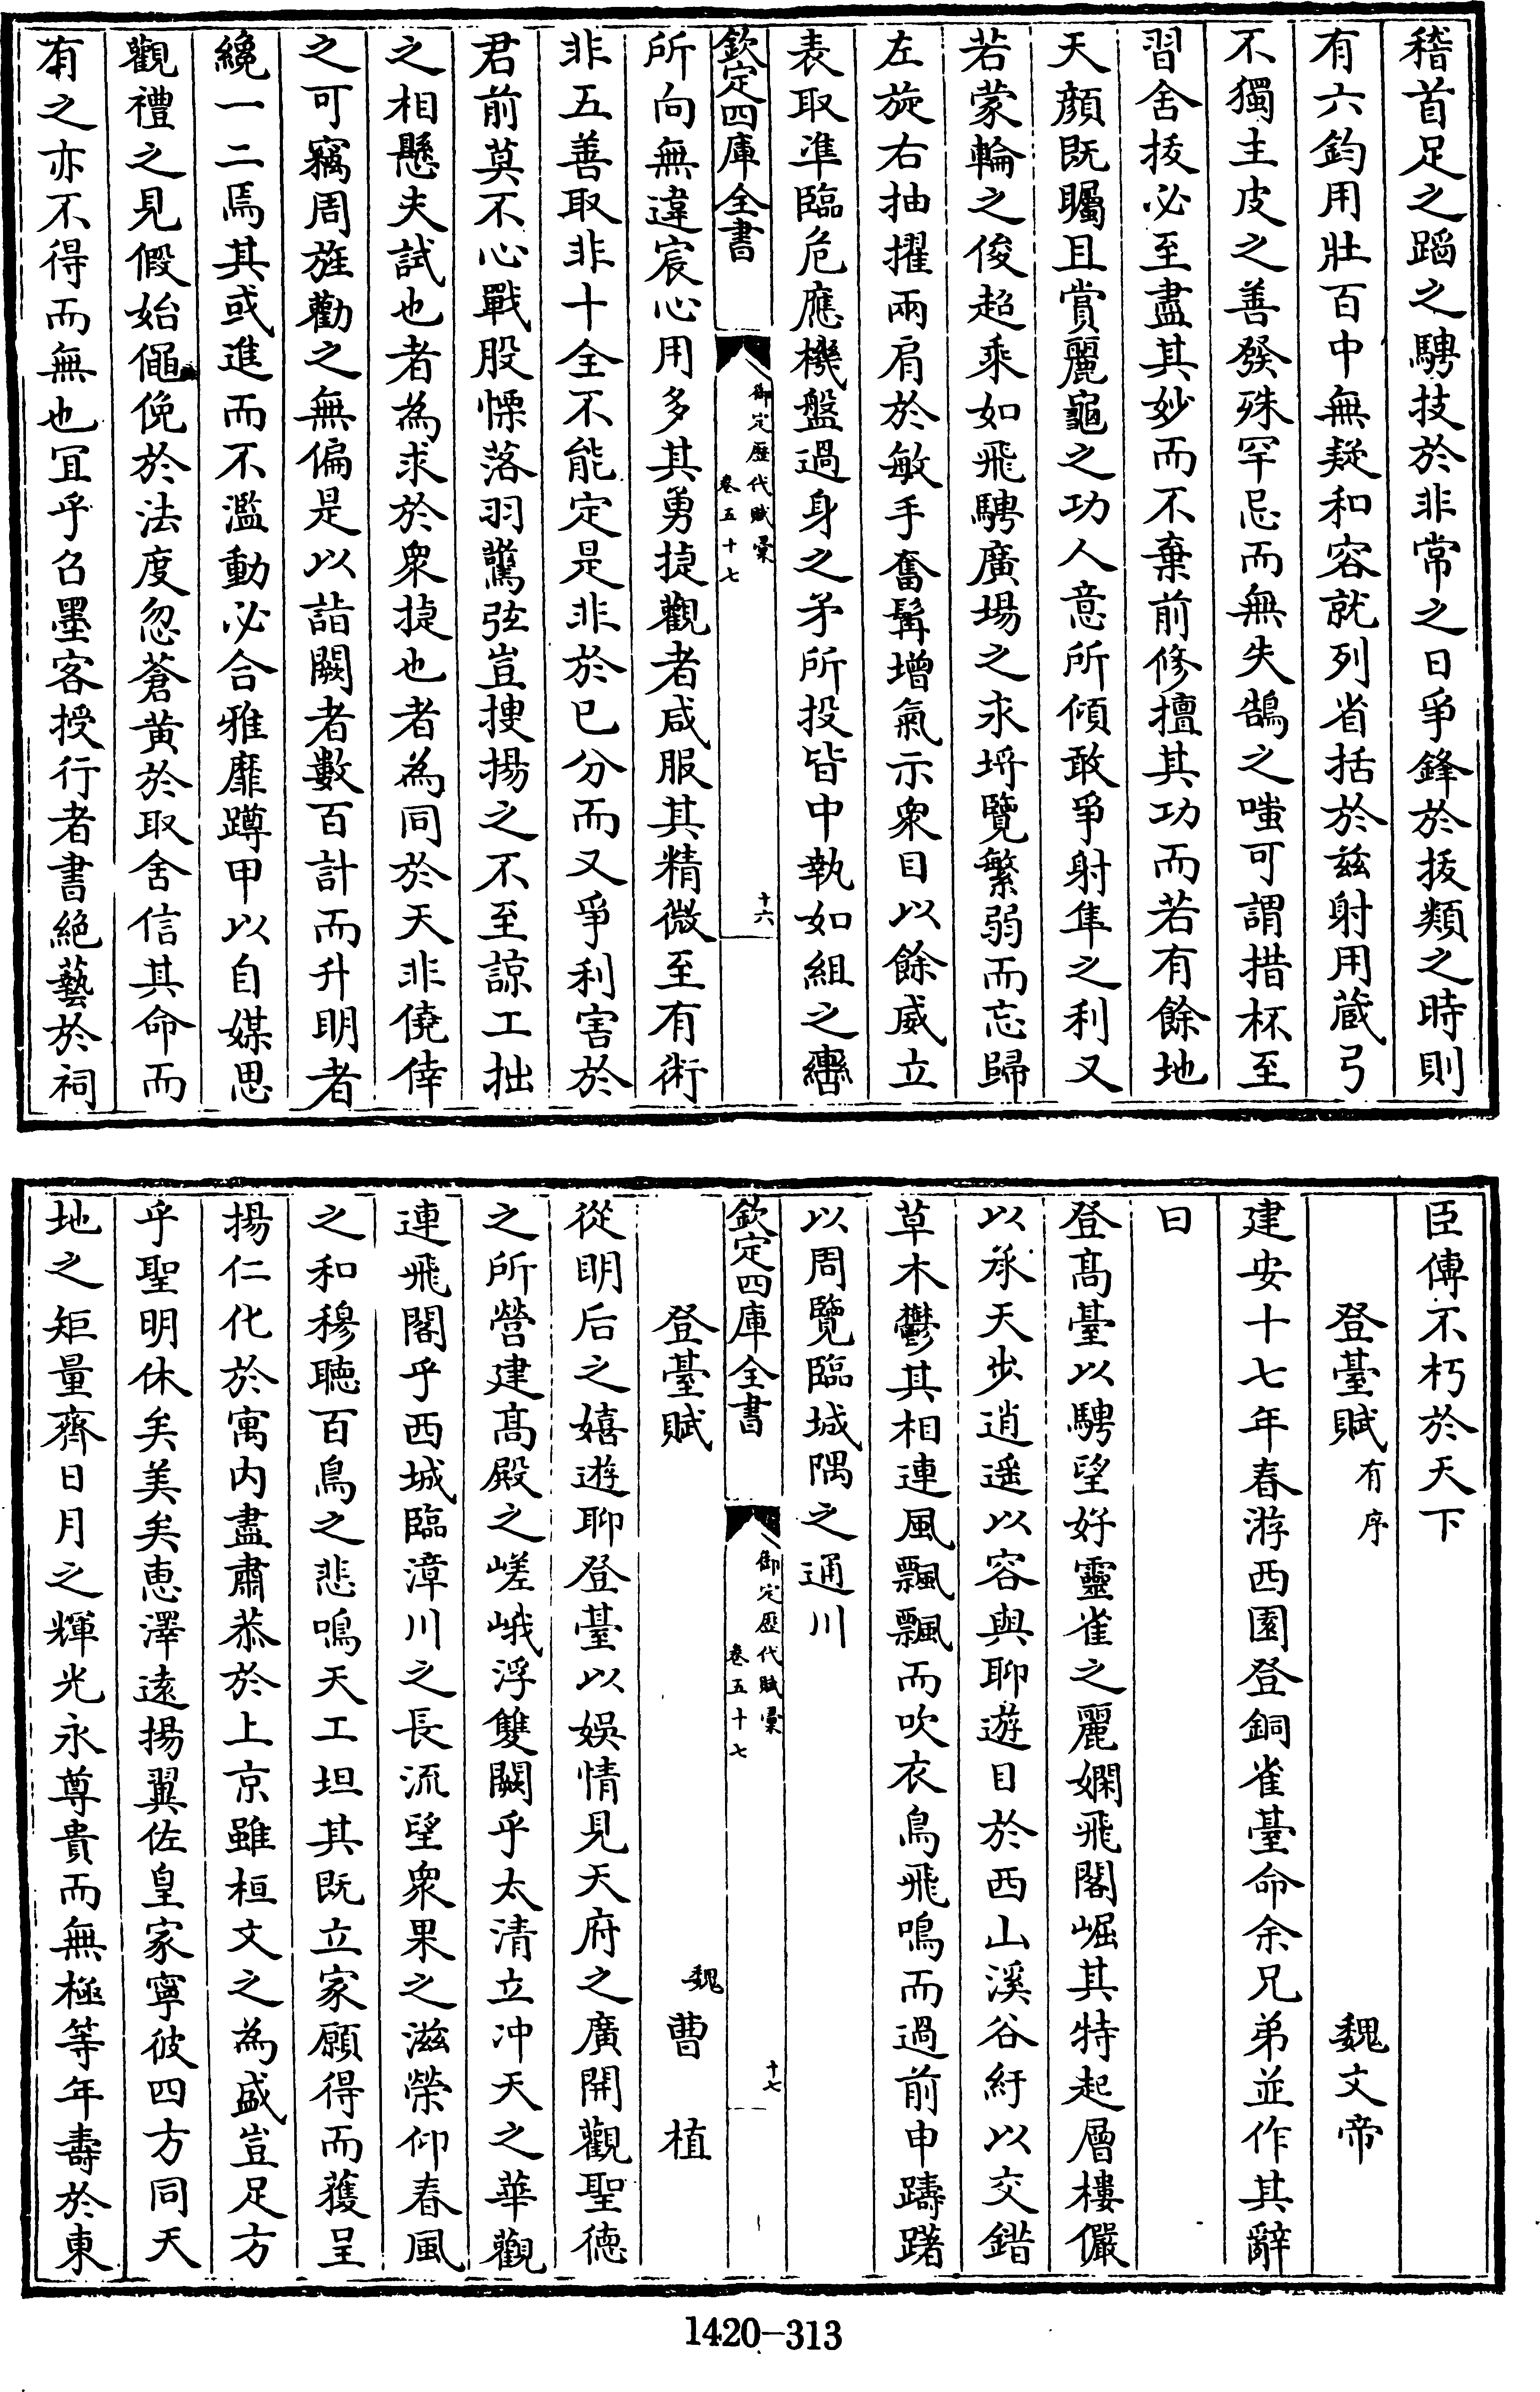 稽首足之蹈之騁技於非常之日爭鋒於拔類之時則
有六鈞用壯百中無疑和容就列省括於茲射用蔵弓
不獨主皮之善發殊罕忌而無失鵠之嗤可謂措杯至
習舍拔必至盡其妙而不棄前修擅其功而若有餘地
天顔既矚且賞麗龜之功人意所傾敢爭射隼之利又
若蒙輪之俊超乘如飛騁廣場之求埒覽繁弱而忘歸
左旋右抽擢兩肩於敏手奮髯增氣示衆目以餘威立
表取準臨危應機盤過身之矛所投皆中執如組之轡
欽定四庫全書
御定歷代賦彙
卷五十七
十六
所向無違宸心用多其勇捷觀者咸服其精微至有術
非五善取非十全不能定是非於已分而又爭利害於
君前莫不心戰股慄落羽驚弦豈捜揚之不至諒工拙
之相懸夫試也者為求於衆捷也者為同於天非僥倖
之可竊周旌勸之無偏是以詣闕者數百計而升明者
纔一二焉其或進而不濫動必合雅靡蹲甲以自媒思
觀禮之見假始僶俛於法度忽蒼黄於取舍信其命而
有之亦不得而無也冝乎召墨客授行者書絶藝於祠
臣傳不朽於天下
登臺賦有序　魏文帝
建安十七年春游西園登銅雀臺命余兄弟並作其辭
曰
登髙臺以騁望好靈雀之麗嫻飛閣崛其特起層樓儼
以承天步逍遥以容與聊遊目於西山溪谷紆以交錯
草木鬱其相連風飄飄而吹衣鳥飛鳴而過前申躊躇
以周覽臨城隅之通川
欽定四庫全書
御定歷代賦彙
卷五十七
十七
登臺賦　魏曹植
從明后之嬉遊聊登臺以娱情見天府之廣開觀聖德
之所營建髙殿之嵯峨浮雙闕乎太清立冲天之華觀
連飛閣乎西城臨漳川之長流望衆果之滋榮仰春風
之和穆聴百鳥之悲鳴天工坦其既立家願得而獲呈
揚仁化於寓内盡肅恭於上京雖桓文之為盛豈足方
乎聖明休矣美矣恵澤逺揚翼佐皇家寧彼四方同天
地之矩量齊日月之輝光永尊貴而無極等年壽於東
1420—313